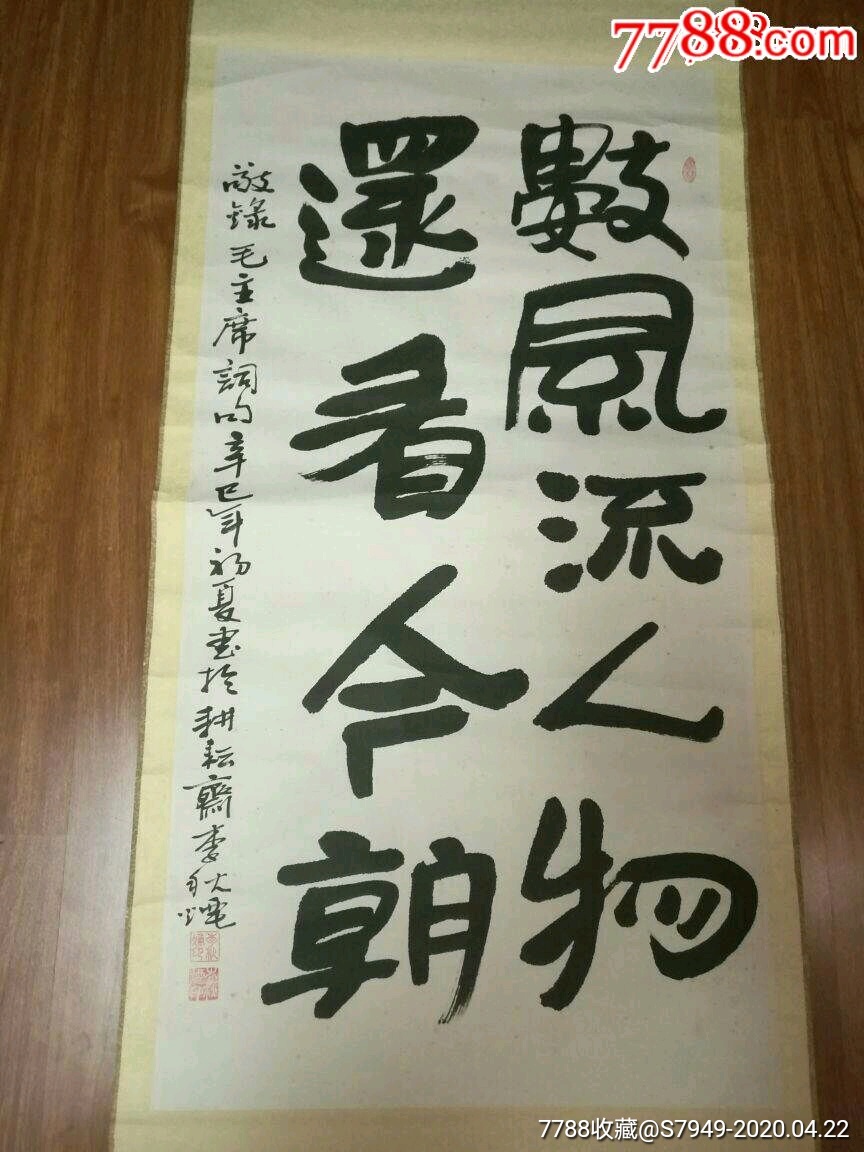 7788.com
數風流人物
還看今朝
敬錄毛主席詞句辛巳年初夏書於耕耘齋李秋
7788收藏@S7949-2020.04.22